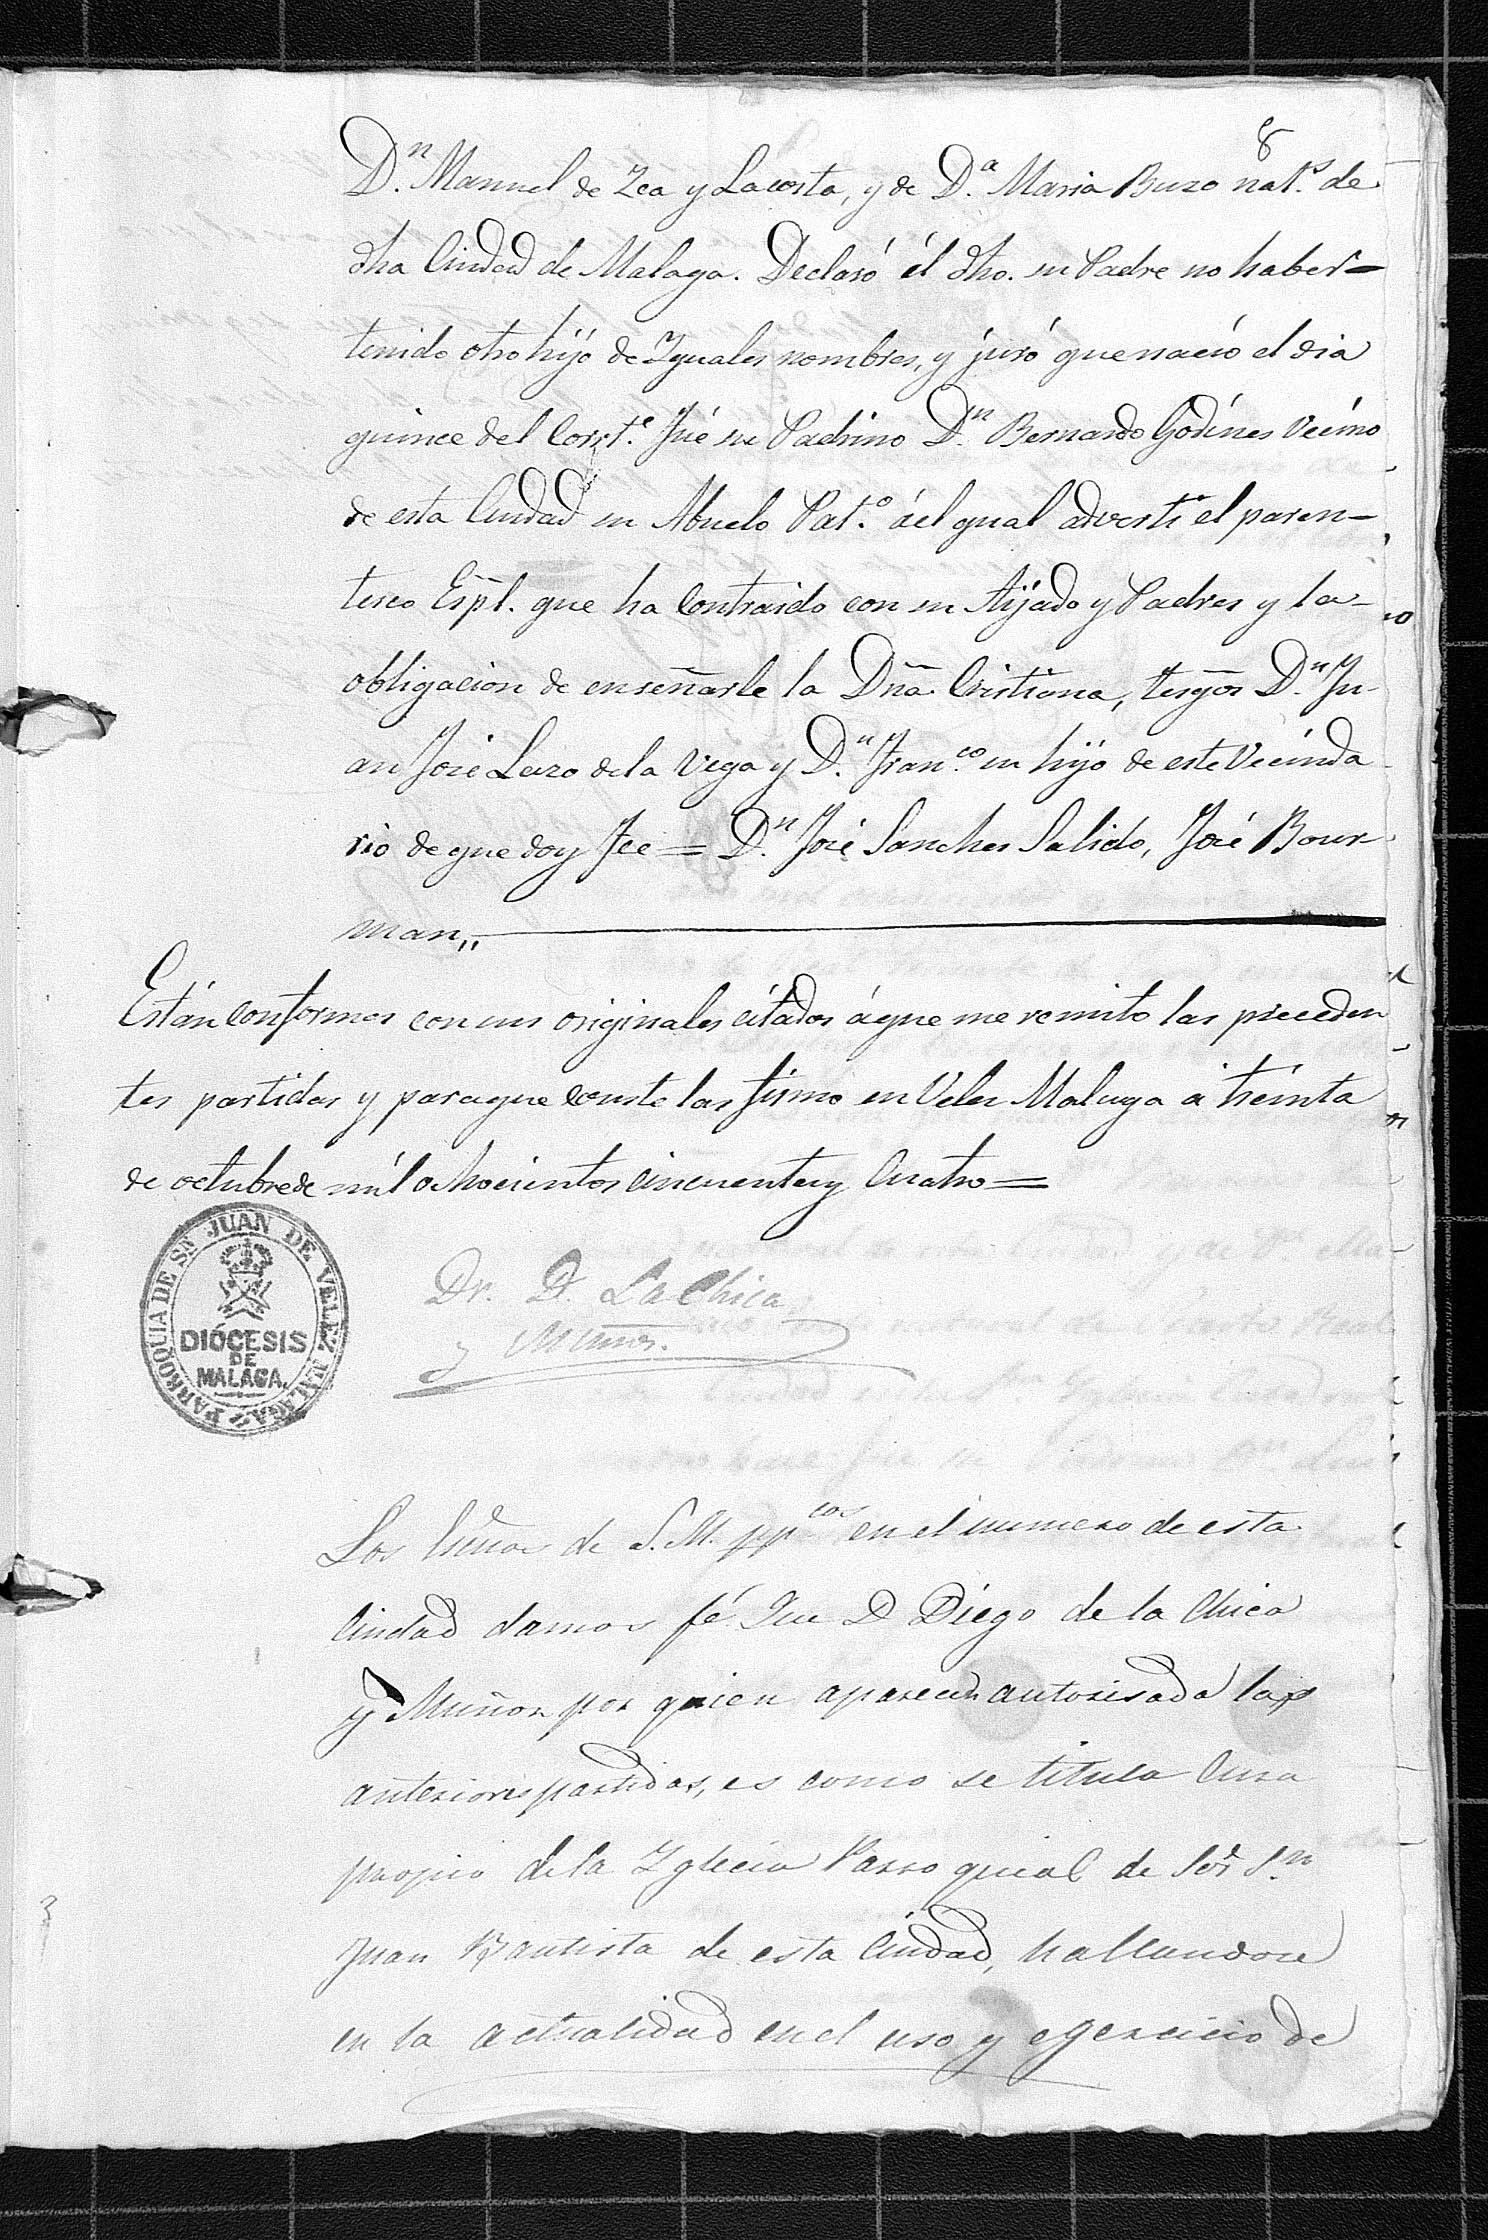 8
D.n Manuel de Zea y Lacosta, y de D.a Maria Buzo nat.s de
dha Ciudad de Malaga. Declaró él dho. su Padre no haber=
tenido otro hijo de Yguales nombres, y juró que nació el dia
quince del Corrt.e Fué su Padrino D.n Bernardo Godínes Vecino
de esta Ciudad su Abuelo Pat.o á el qual advertí el paren-
tesco Espl. que ha Contraido con su Aijado y Padres y la-
obligacion de enseñarle la Dña. Cristiana, tesgos D.n Ju-
an José Lazo de la Vega y D.n Fran.co su hijo de este Vecinda
rio de que doy Fee = D.n José Sanches Salido, José Bour-
man,,
Están conformes con sus originales citados á que me remito las preceden
tes partidas y para que conste las firmo en Veles Malaga á treinta
de octubre de mil ochocientos cincuenta y Cuatro =
PARROQUIA DE SN JUAN DE VELEZ MALAGA
DIÓCESIS
DE
MALAGA.
Dr. D. La Chica
y Muños.
Los Escnos de S.M. ppcos en el numero de esta
Ciudad damos fé Que D Diego de la Chica
y Muñoz por quien aparecen autorisada las
anteriores partidas, es como se titula Cura
propio de la Yglecia Parroquial de Sor S.n
Juan Bautista de esta Ciudad, hallandose
en la actualidad en el uso y egercicio de